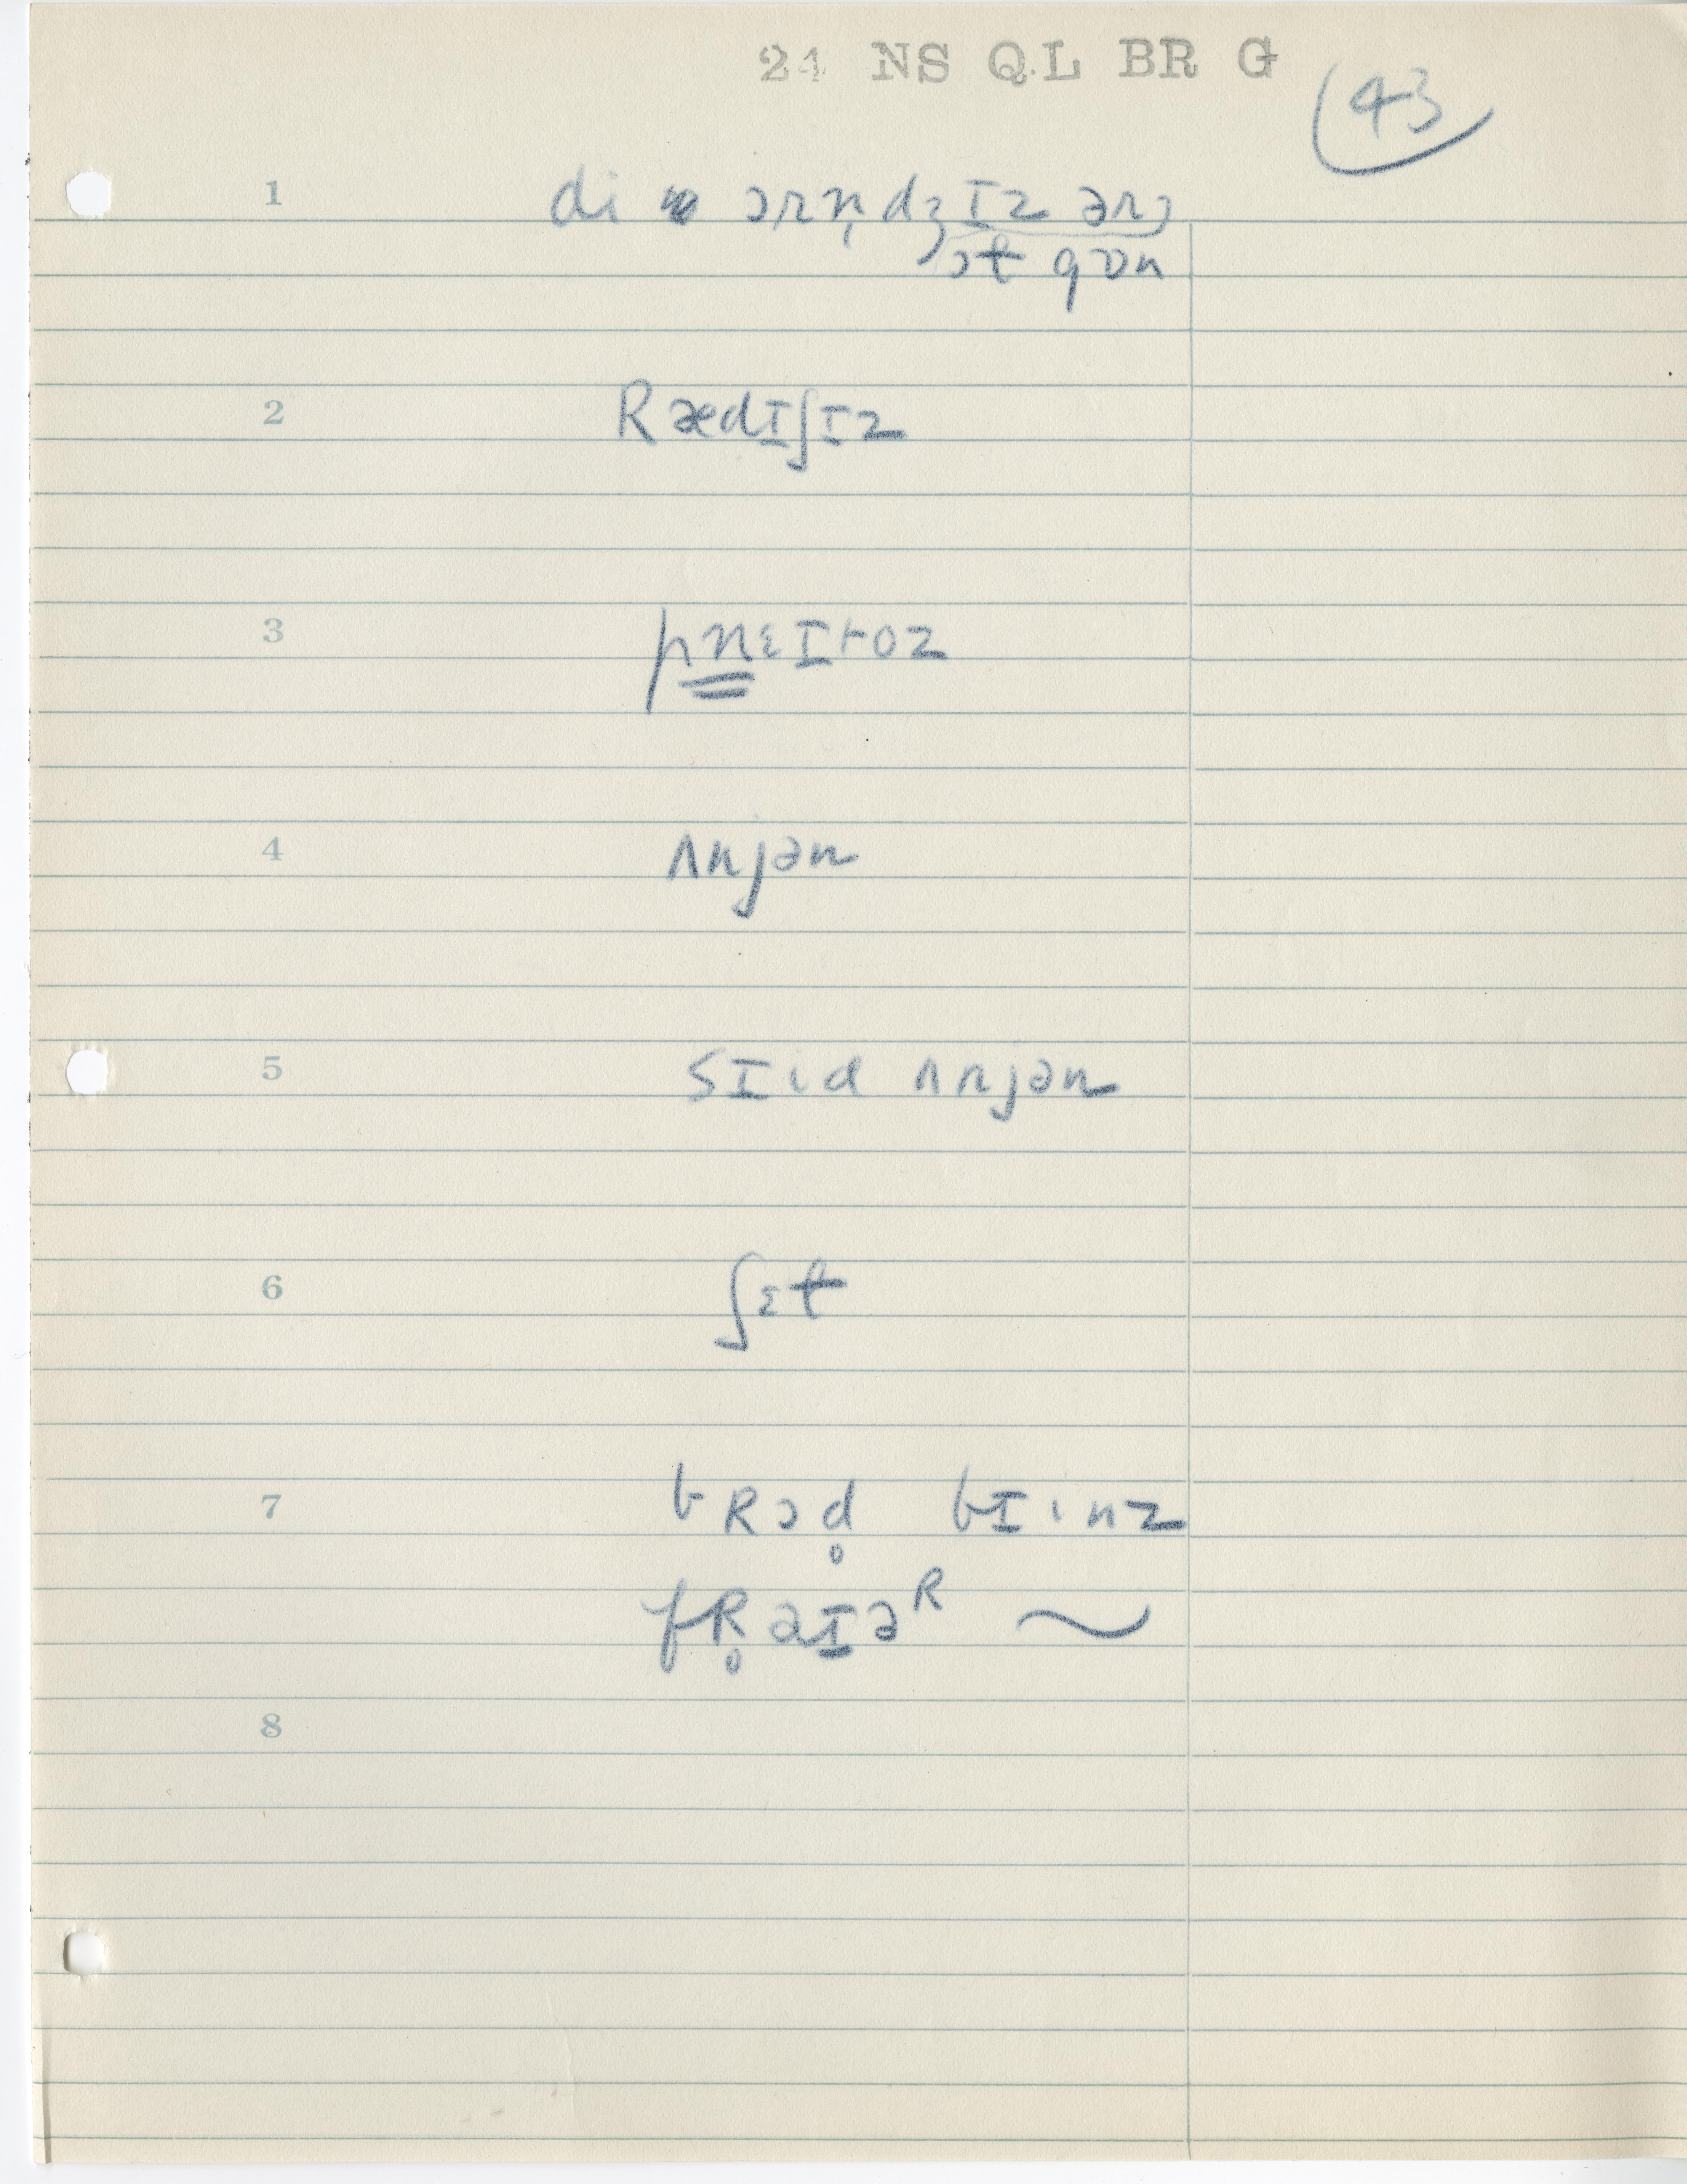 24 NS QL BR G
43
1 di ɔrn̩dʒɪz ər
ɔt gɒn
2 RædɪʃɪZ
3 pnɛɪtoz
4 ʌnjən
5 sɪid ʌnjən
6 ʃɛt
7 bRɔd̥ bɪinz
fR̥əɪəᴿ ~
8